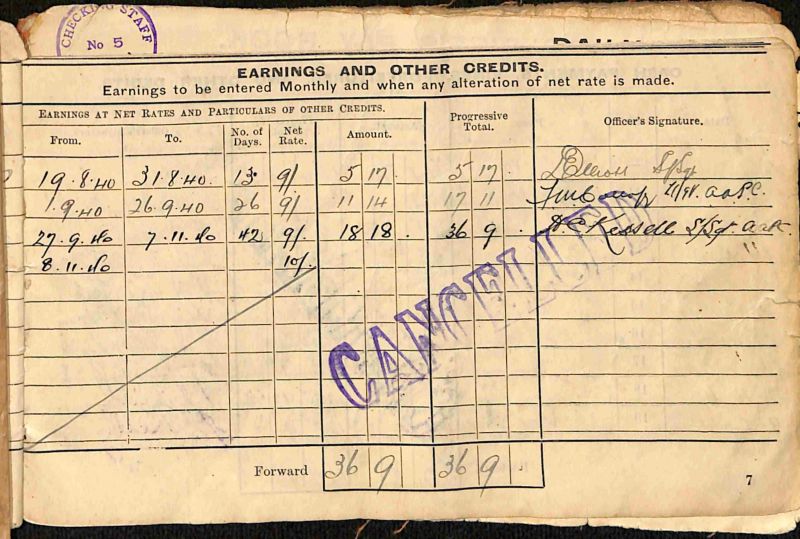 CHECKING STAFF
No 5
EARNINGS AND OTHER CREDITS.
Earnings to be entered Monthly and when any alteration of net rate is made.
EARNINGS AT NET RATES AND PARTICULARS OF OTHER CREDITS.
From. To. No. of Days. Net Rate. Amount. Progressive Total. Officer's Signature.
19.8.40 31.8.40 13 9/ 5 17 5 17 S/Sgt
1.9.40 26.9.40 26 9/ 11 14 17 11 A.A.P.C.
27.9.40 7.11.40 42 9/. 18 18 . 36 9 . Kessell S/Sgt
8.11.40 10/. "
CANCELLED
Forward 36 9 36 9
7